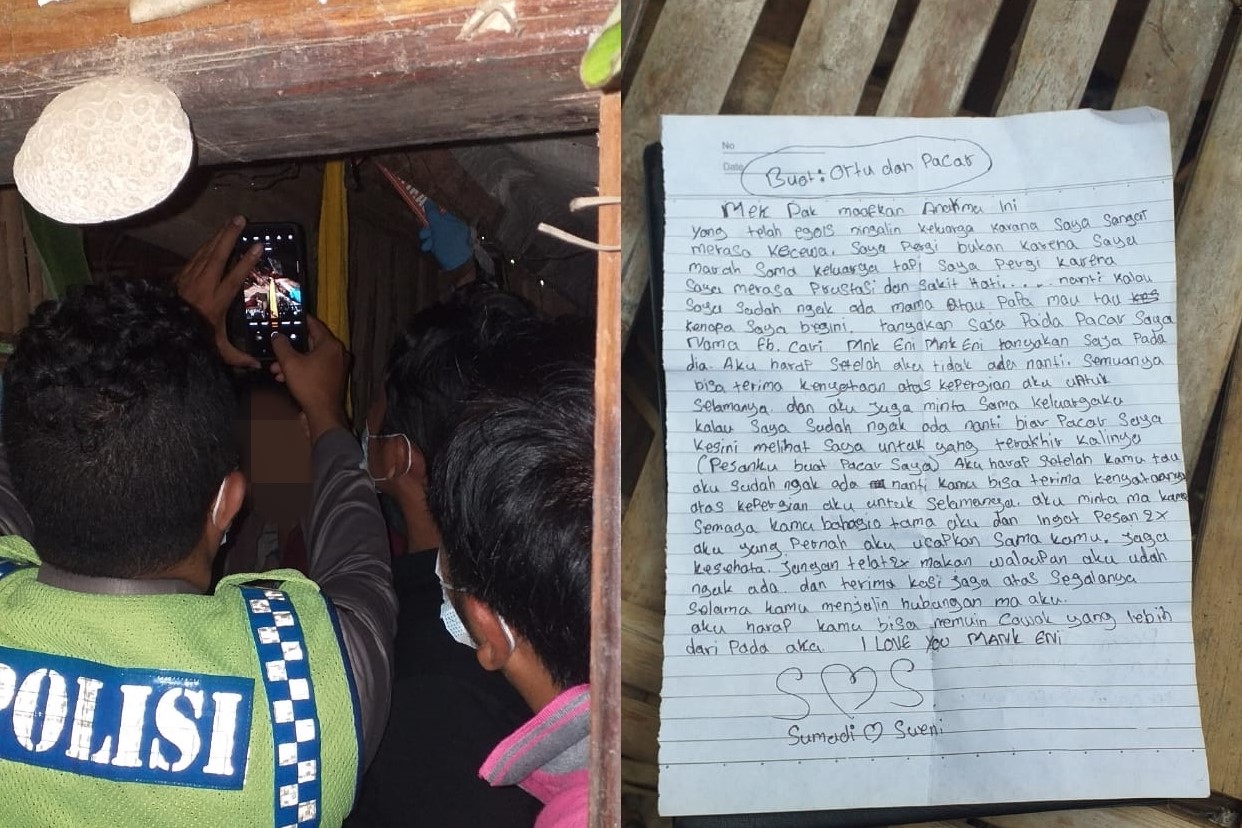 POLISI
No
Date
Buat: Ortu dan Pacar
Mek Pak maafkan Anakmu ini
yang telah egois ningalin keluarga karana Saya Sangat
merasa kecewa. Saya Pergi bukan karena Saya
marah Sama keluarga tapi Saya Pergi karena
Saya merasa Prustasi dan Sakit Hati..... nanti kalau
Saya Sudah ngak ada mama Atau Papa mau tau
kenapa Saya begini. tanyakan Saja Pada Pacar Saya
Nama Fb. Cari Mnk Eni Mnk Eni tanyakan Saja Pada
dia. Aku harap Setelah aku tidak ada nanti. Semuanya
bisa terima kenyataan atas kepergian aku untuk
Selamanya. dan aku Juga minta Sama keluargaku
kalau Saya Sudah ngak ada nanti biar Pacar Saya
kesini melihat Saya untuk yang terakhir kalinya
(Pesanku buat Pacar Saya) Aku harap Setelah kamu tau
aku Sudah ngak ada nanti kamu bisa terima kenyataannya
atas kepergian aku untuk Selamanya. aku minta ma kamu
Semoga kamu bahagia tama aku dan Ingat Pesan2x
aku yang Pernah aku ucapkan Sama kamu. Jaga
kesehata. Jangan telat2x makan walaupan aku udah
ngak ada. dan terima kasi Jaga atas Segalanya
Selama kamu menjalin hubungan ma aku.
aku harap kamu bisa nemuin Cowok yang lebih
dari Pada aku. I LOVE YOU MANK ENI
S ♡ S
Sumadi ♡ Sueni